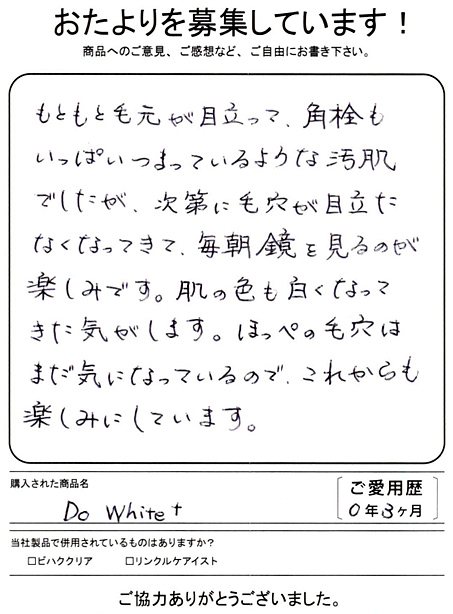 おたよりを募集しています！
商品へのご意見、ご感想など、ご自由にお書き下さい。
もともと毛元が目立って、角栓も
いっぱいつまっているような汚肌
でしたが、次第に毛穴が目立た
なくなってきて、毎朝鏡を見るのが
楽しみです。肌の色も白くなって
きた気がします。ほっぺの毛穴は
まだ気になっているので、これからも
楽しみにしています。
購入された商品名
Do White+
ご愛用歴
0年3ヶ月
当社製品で併用されているものはありますか？
□ビハククリア □リンクルケアイスト
ご協力ありがとうございました。